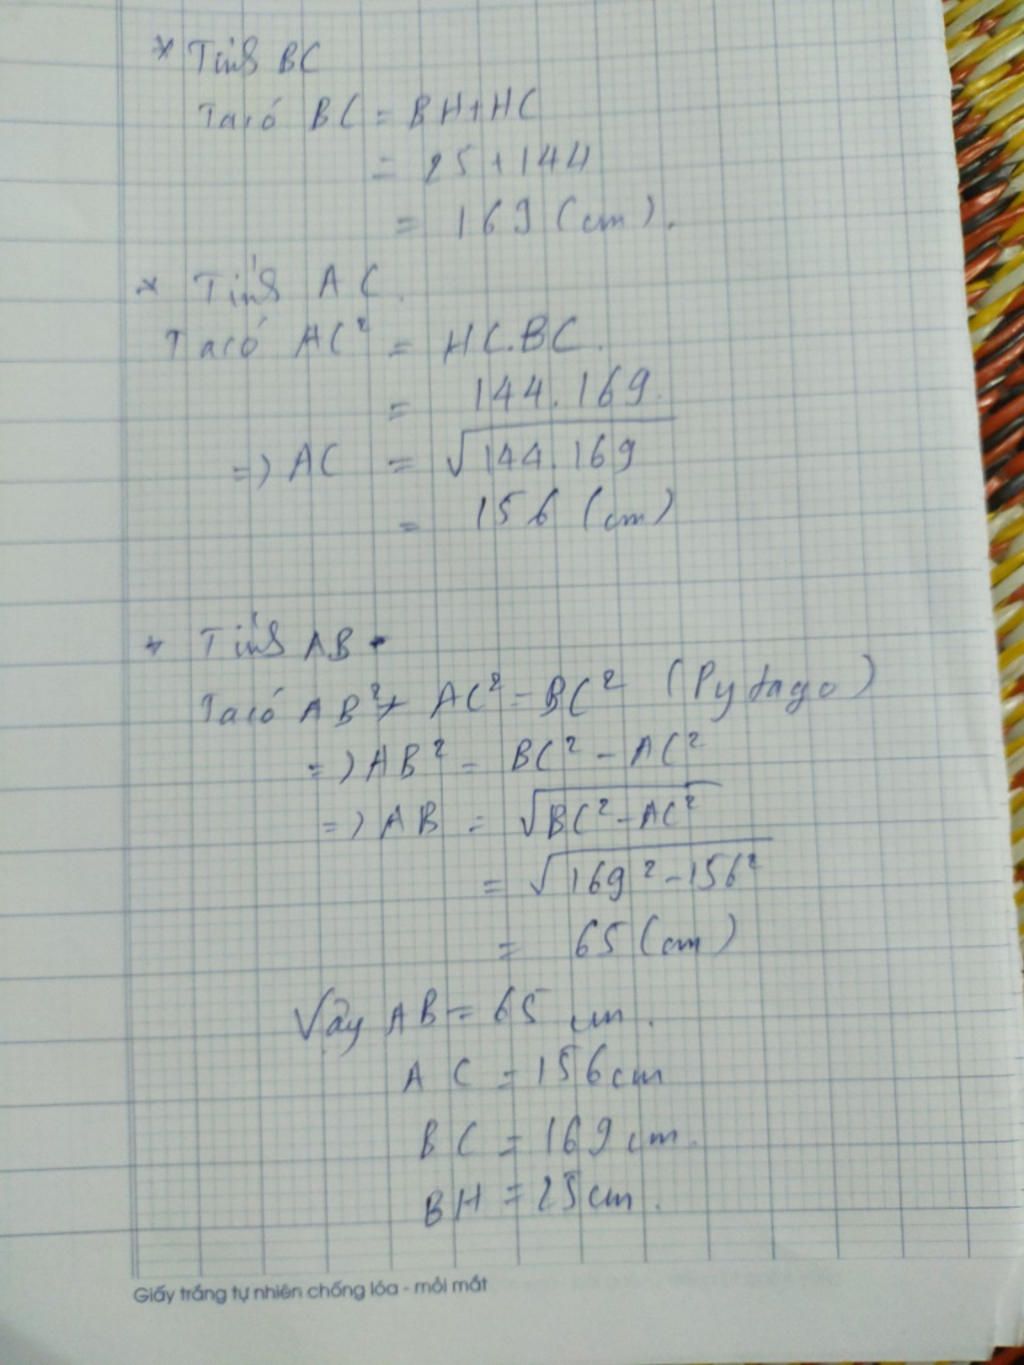 * Tính BC
Ta có BC = BH + HC
= 25 + 144
= 169 (cm).
* Tính AC.
Ta có AC² = HC.BC.
= 144.169.
=> AC = √144.169
= 156 (cm)
* Tính AB.
Ta có AB² + AC² = BC² (Pytago)
=> AB² = BC² - AC²
=> AB = √BC² - AC²
= √169² - 156²
= 65 (cm)
Vậy AB = 65 cm.
AC = 156 cm
BC = 169 cm.
BH = 25 cm.
Giấy trắng tự nhiên chống lóa - mỏi mắt